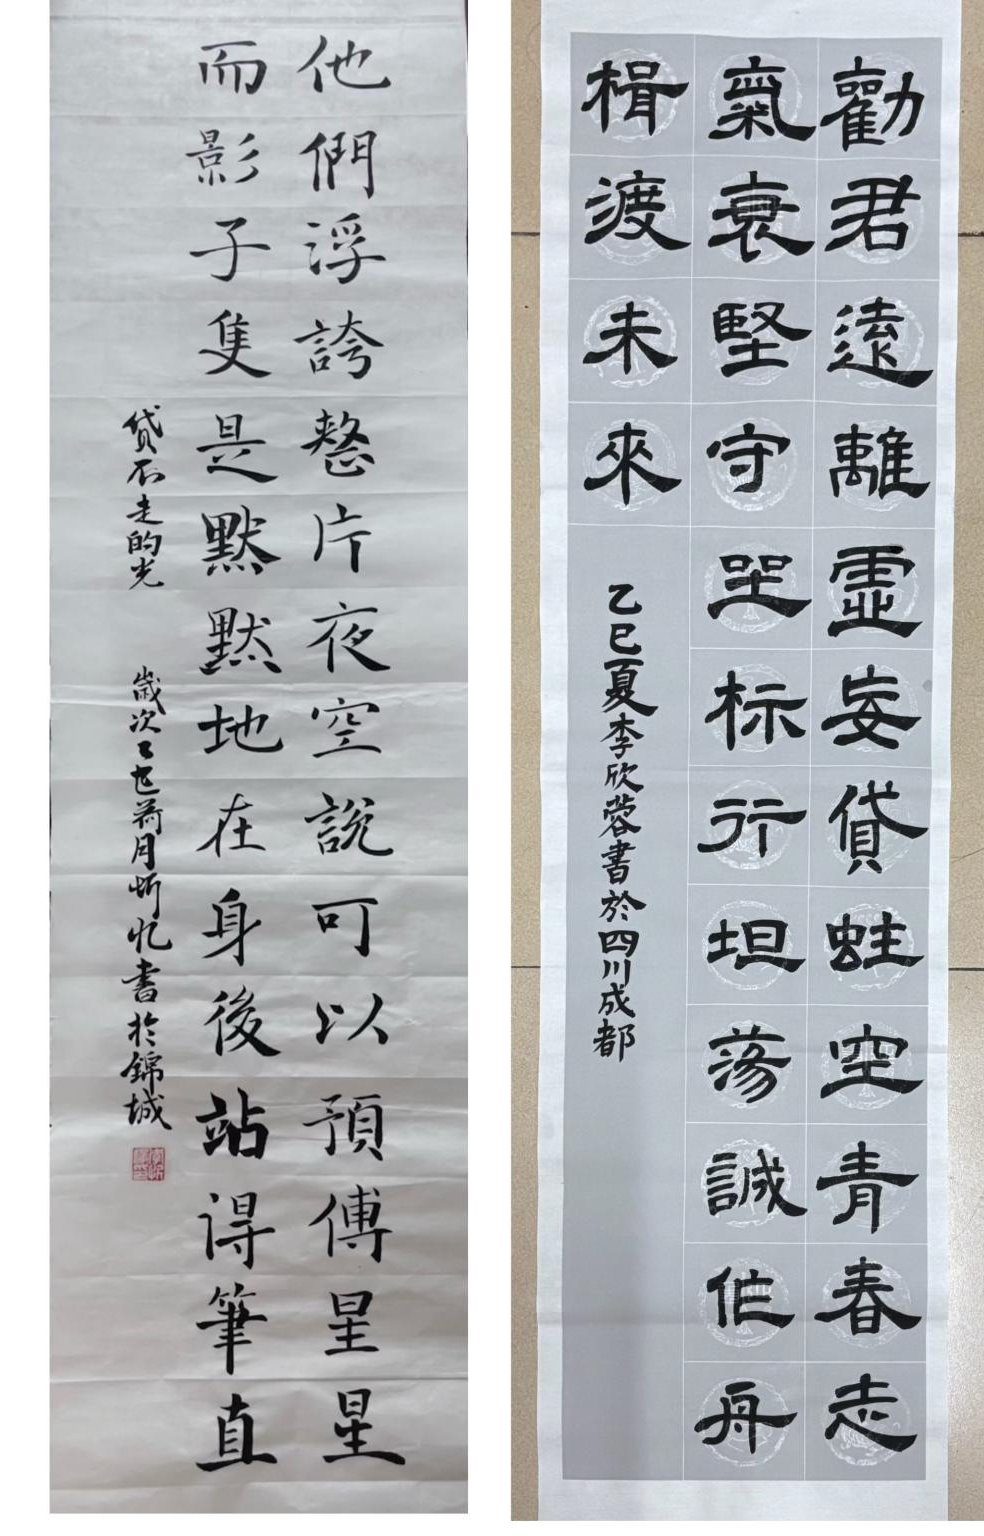 他們浮誇整片夜空說可以預傅星星
而影子隻是默默地在身後站得筆直
貸不走的光
歲次乙巳荷月忻忆書於錦城
勸君遠離虛妄貸蛀空青春志
氣衰堅守坐标行坦荡誠作舟
楫渡未來
乙巳夏李欣蓉書於四川成都